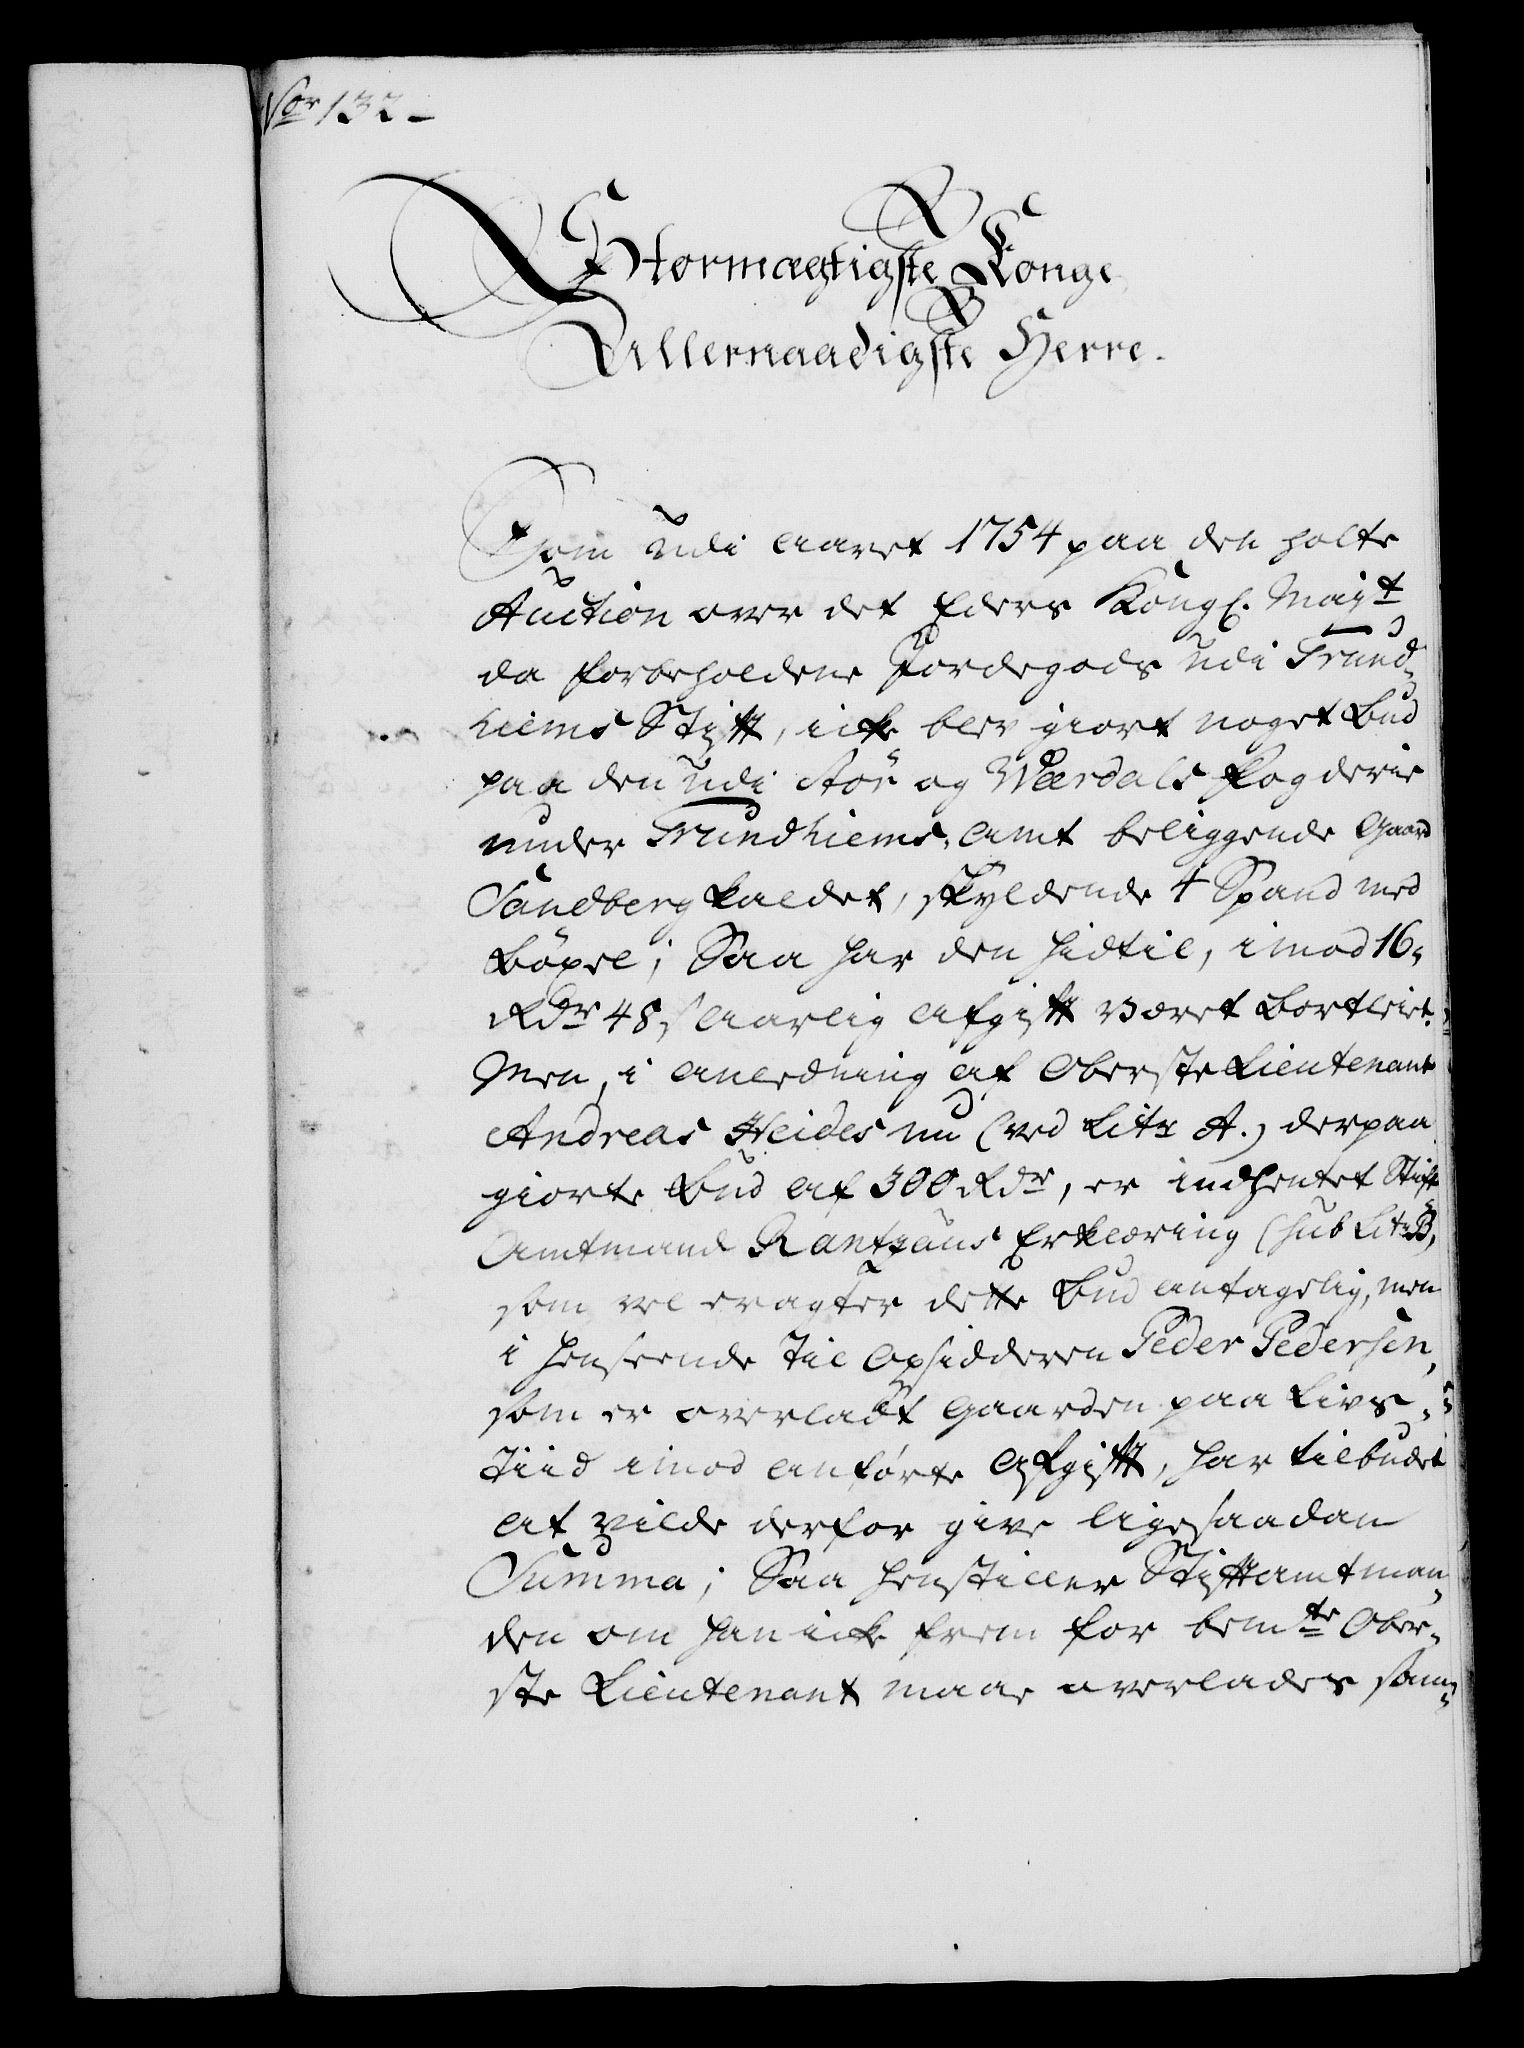 No 132 -
Stormægtigste Konge
Allernaadigste Herre.
Som udi Aaret 1754 paa den holte
Auction over det Eders Kongl. Mayt
da forbeholdene Jordegods udi Trund„
hiems Stift, icke blev giort noget Bud
paa den udi Stör og Wærdals Fogderie
under Trundhiems Amt beliggende Gaard
Sandberg kaldet, skyldende 4 Spand med
Böxel; Saa har den hidtil, imod 16„
Rdr 48 s Aarlig Afgift været bortleiet.
Men, i Anledning af Oberste Lieutenant
Andreas Heides nu (ved Litr A.) derpaa
giorte Bud af 300 Rdr, er indhentet Stift
Amtmand Rantzaus Erklæring (sub Litr B,
som vel eragter dette Bud antagelig, men
i Henseende til Opsidderen Peder Pedersen,
som er overladt Gaarden paa Livs„
Tiid imod anførte Afgift, har tilbudet
at vilde derfor give ligesaadan
Summa; Saa henstiller Stiftamtman„
den om han icke frem for bemte Ober„
ste Lieutenant maae overlades sam„